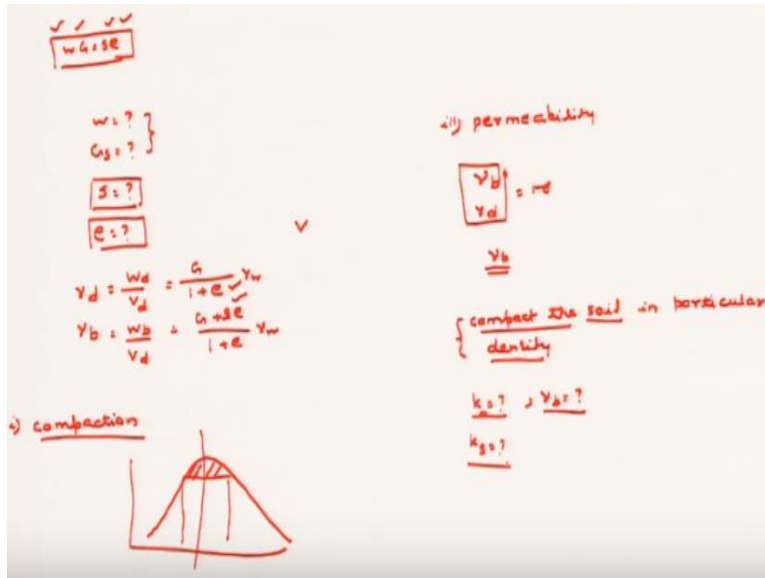 ✓ ✓ ✓ ✓
wG=Se
w=?
Gs=?
S=?
e=?
γd = Wd/Vd = G/(1+e) γw
γb = Wb/Vd = (G+Se)/(1+e) γw
i) compaction
V
iii) permeability
γb
γd
γb
compact the soil in particular
density
k=?, γb=?
ks=?